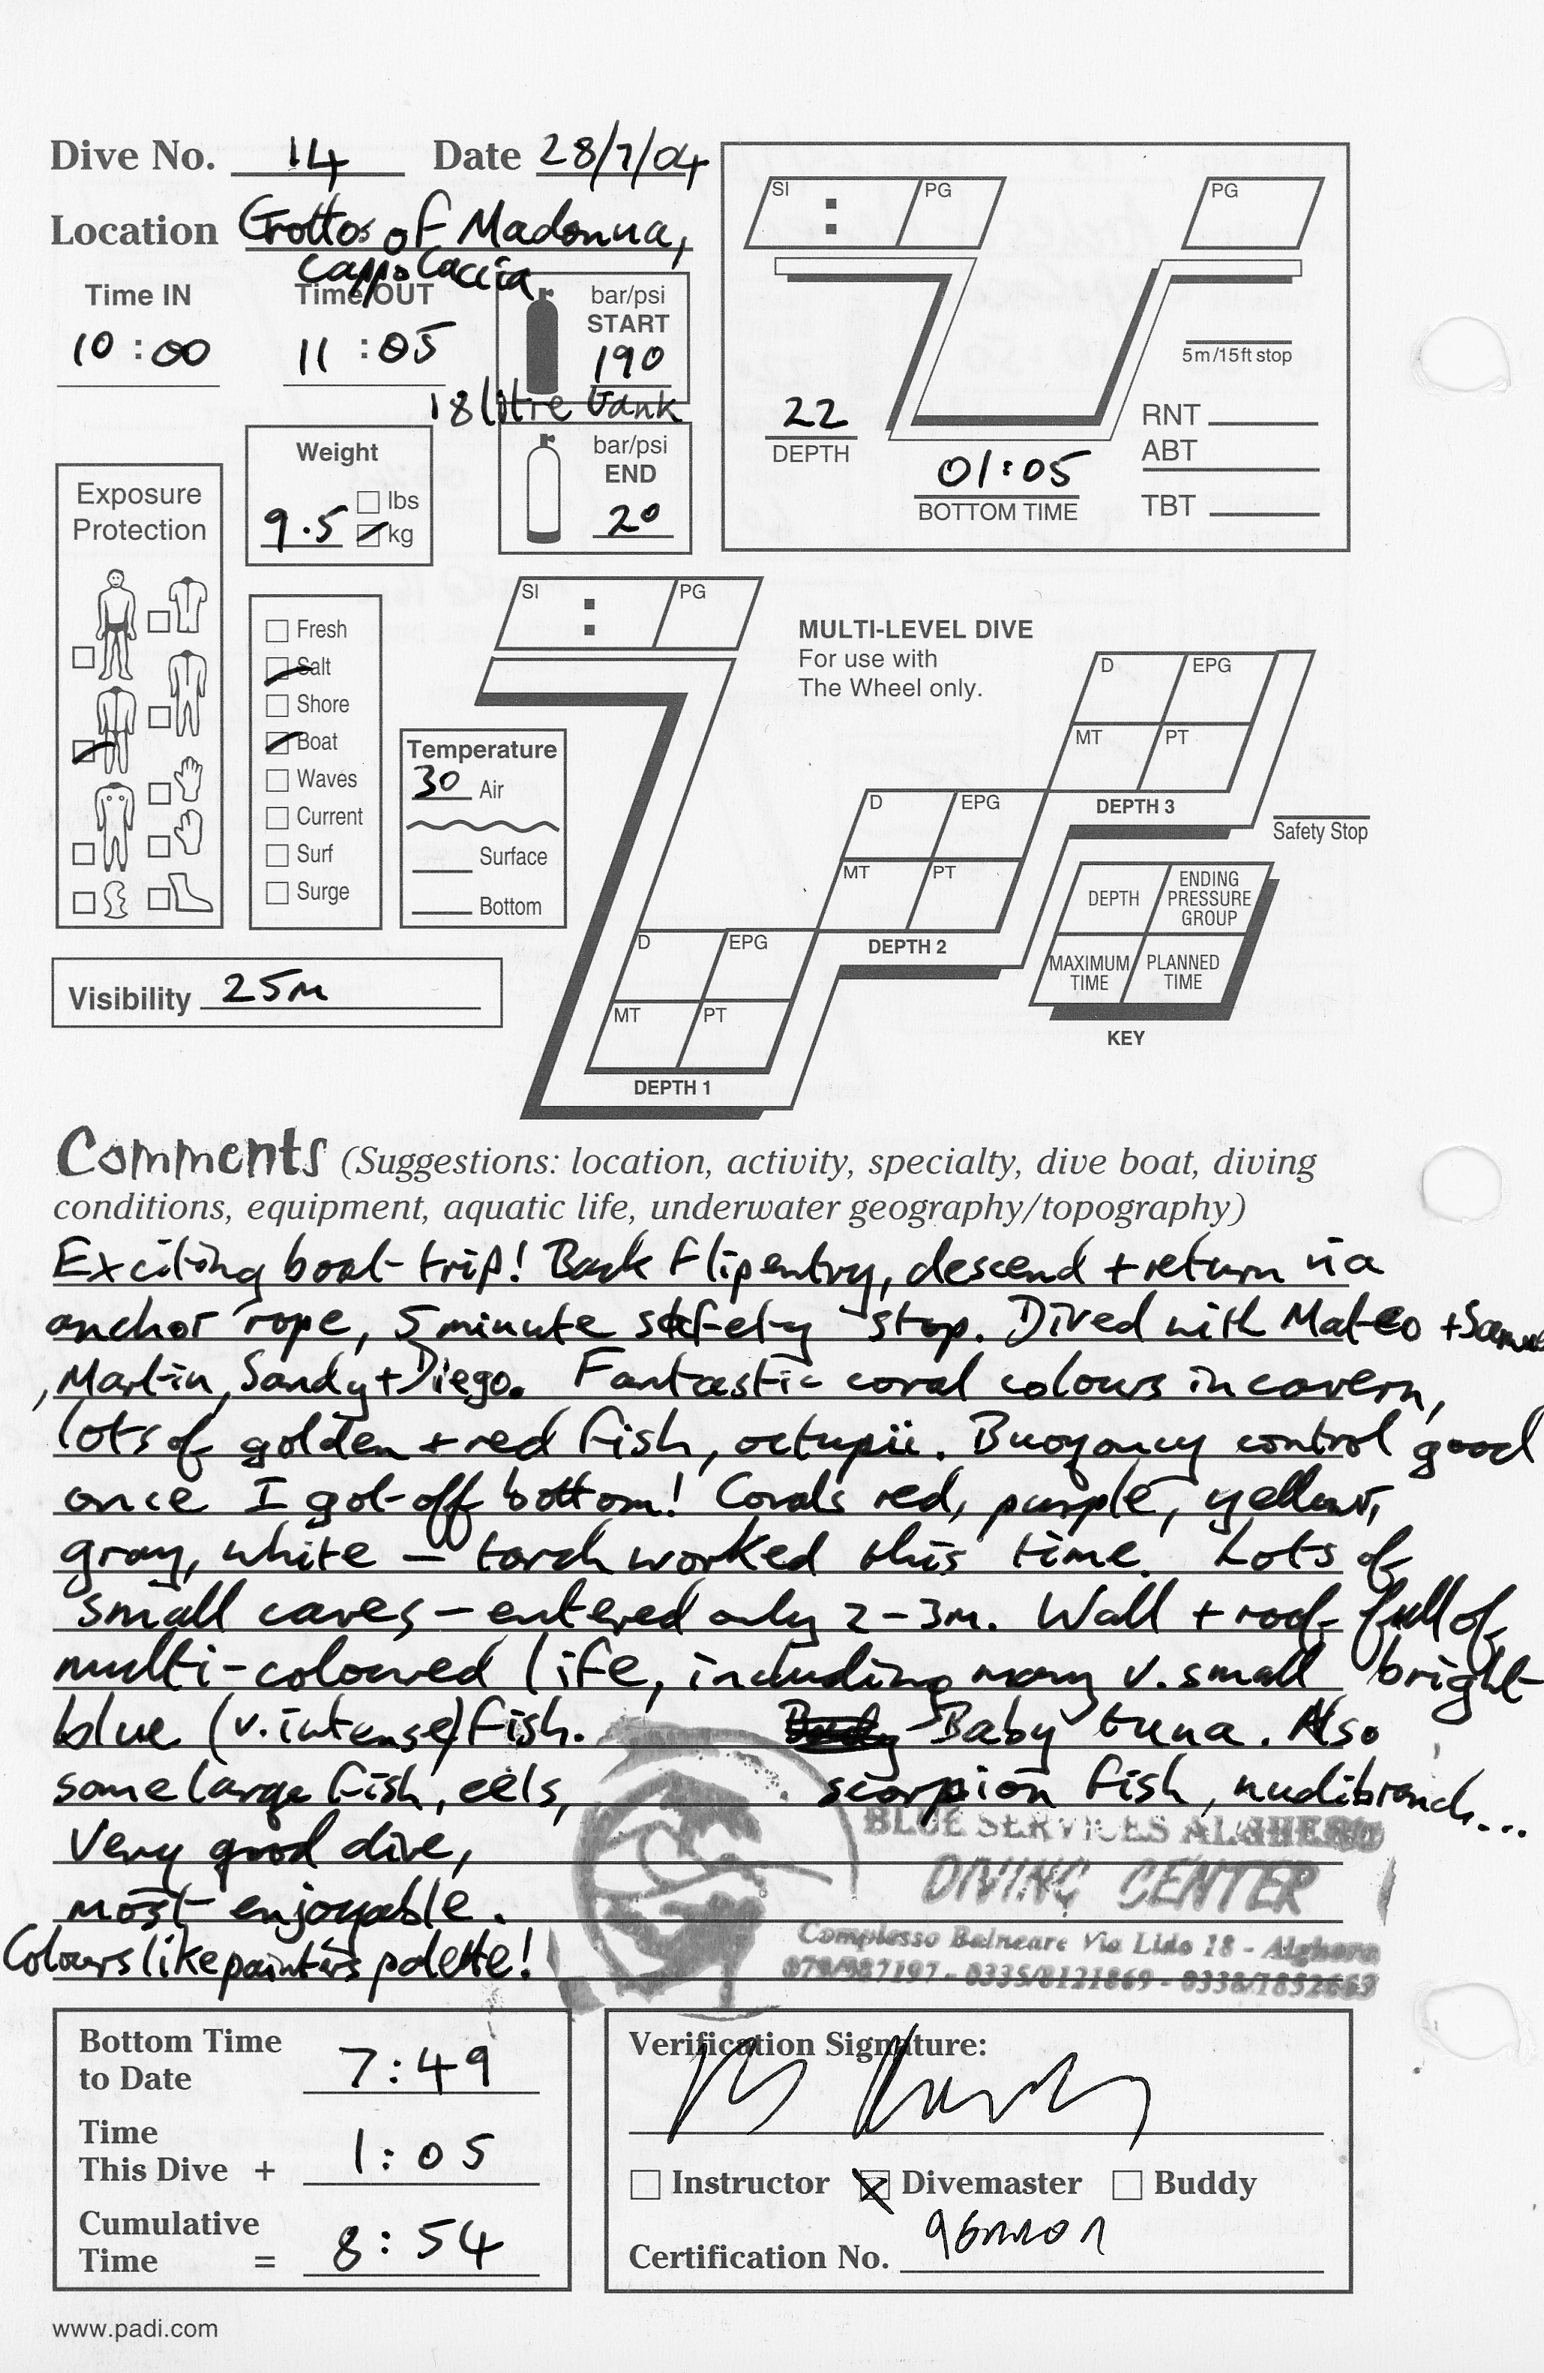 Dive No. 14 Date 28/7/04
Location Grottos of Madonna,
Cappo Caccia
Time IN Time OUT
10:00 11:05
bar/psi
START
190
18 litre tank
bar/psi
END
20
SI : PG PG
5m/15ft stop
22
DEPTH
01:05
BOTTOM TIME
RNT
ABT
TBT
Weight
9.5 lbs
kg
Exposure
Protection
Fresh
Salt
Shore
Boat
Waves
Current
Surf
Surge
Temperature
30 Air
Surface
Bottom
Visibility 25m
SI : PG
MULTI-LEVEL DIVE
For use with
The Wheel only.
D EPG
MT PT
DEPTH 3
D EPG
MT PT
DEPTH 2
D EPG
MT PT
DEPTH 1
Safety Stop
DEPTH ENDING PRESSURE GROUP
MAXIMUM TIME PLANNED TIME
KEY
Comments (Suggestions: location, activity, specialty, dive boat, diving
conditions, equipment, aquatic life, underwater geography/topography)
Exciting boat-trip! Back flip entry, descend + return via
anchor rope, 5 minute safety stop. Dived with Mateo +
, Martin, Sandy + Diego. Fantastic coral colours in cavern,
lots of golden + red fish, octupii. Buoyancy control good
once I got off bottom! Corals red, purple, yellow,
gray, white – torch worked this time. Lots of
small caves – entered only 2-3m. Wall + roof full of
multi-coloured life, including many v. small bright
blue (v. intense) fish. Baby tuna. Also
some large fish, eels, scorpion fish, nudibranch...
Very good dive,
most enjoyable.
Colours like painters palette!
BLUE SERVICES ALGHERO
DIVING CENTER
Complesso Balneare Via Lido 18 - Alghero
079/987197 - 0335/8121869 -
Bottom Time
to Date 7:49
Time
This Dive + 1:05
Cumulative
Time = 8:54
Verification Signature:
Instructor Divemaster Buddy
Certification No.
www.padi.com